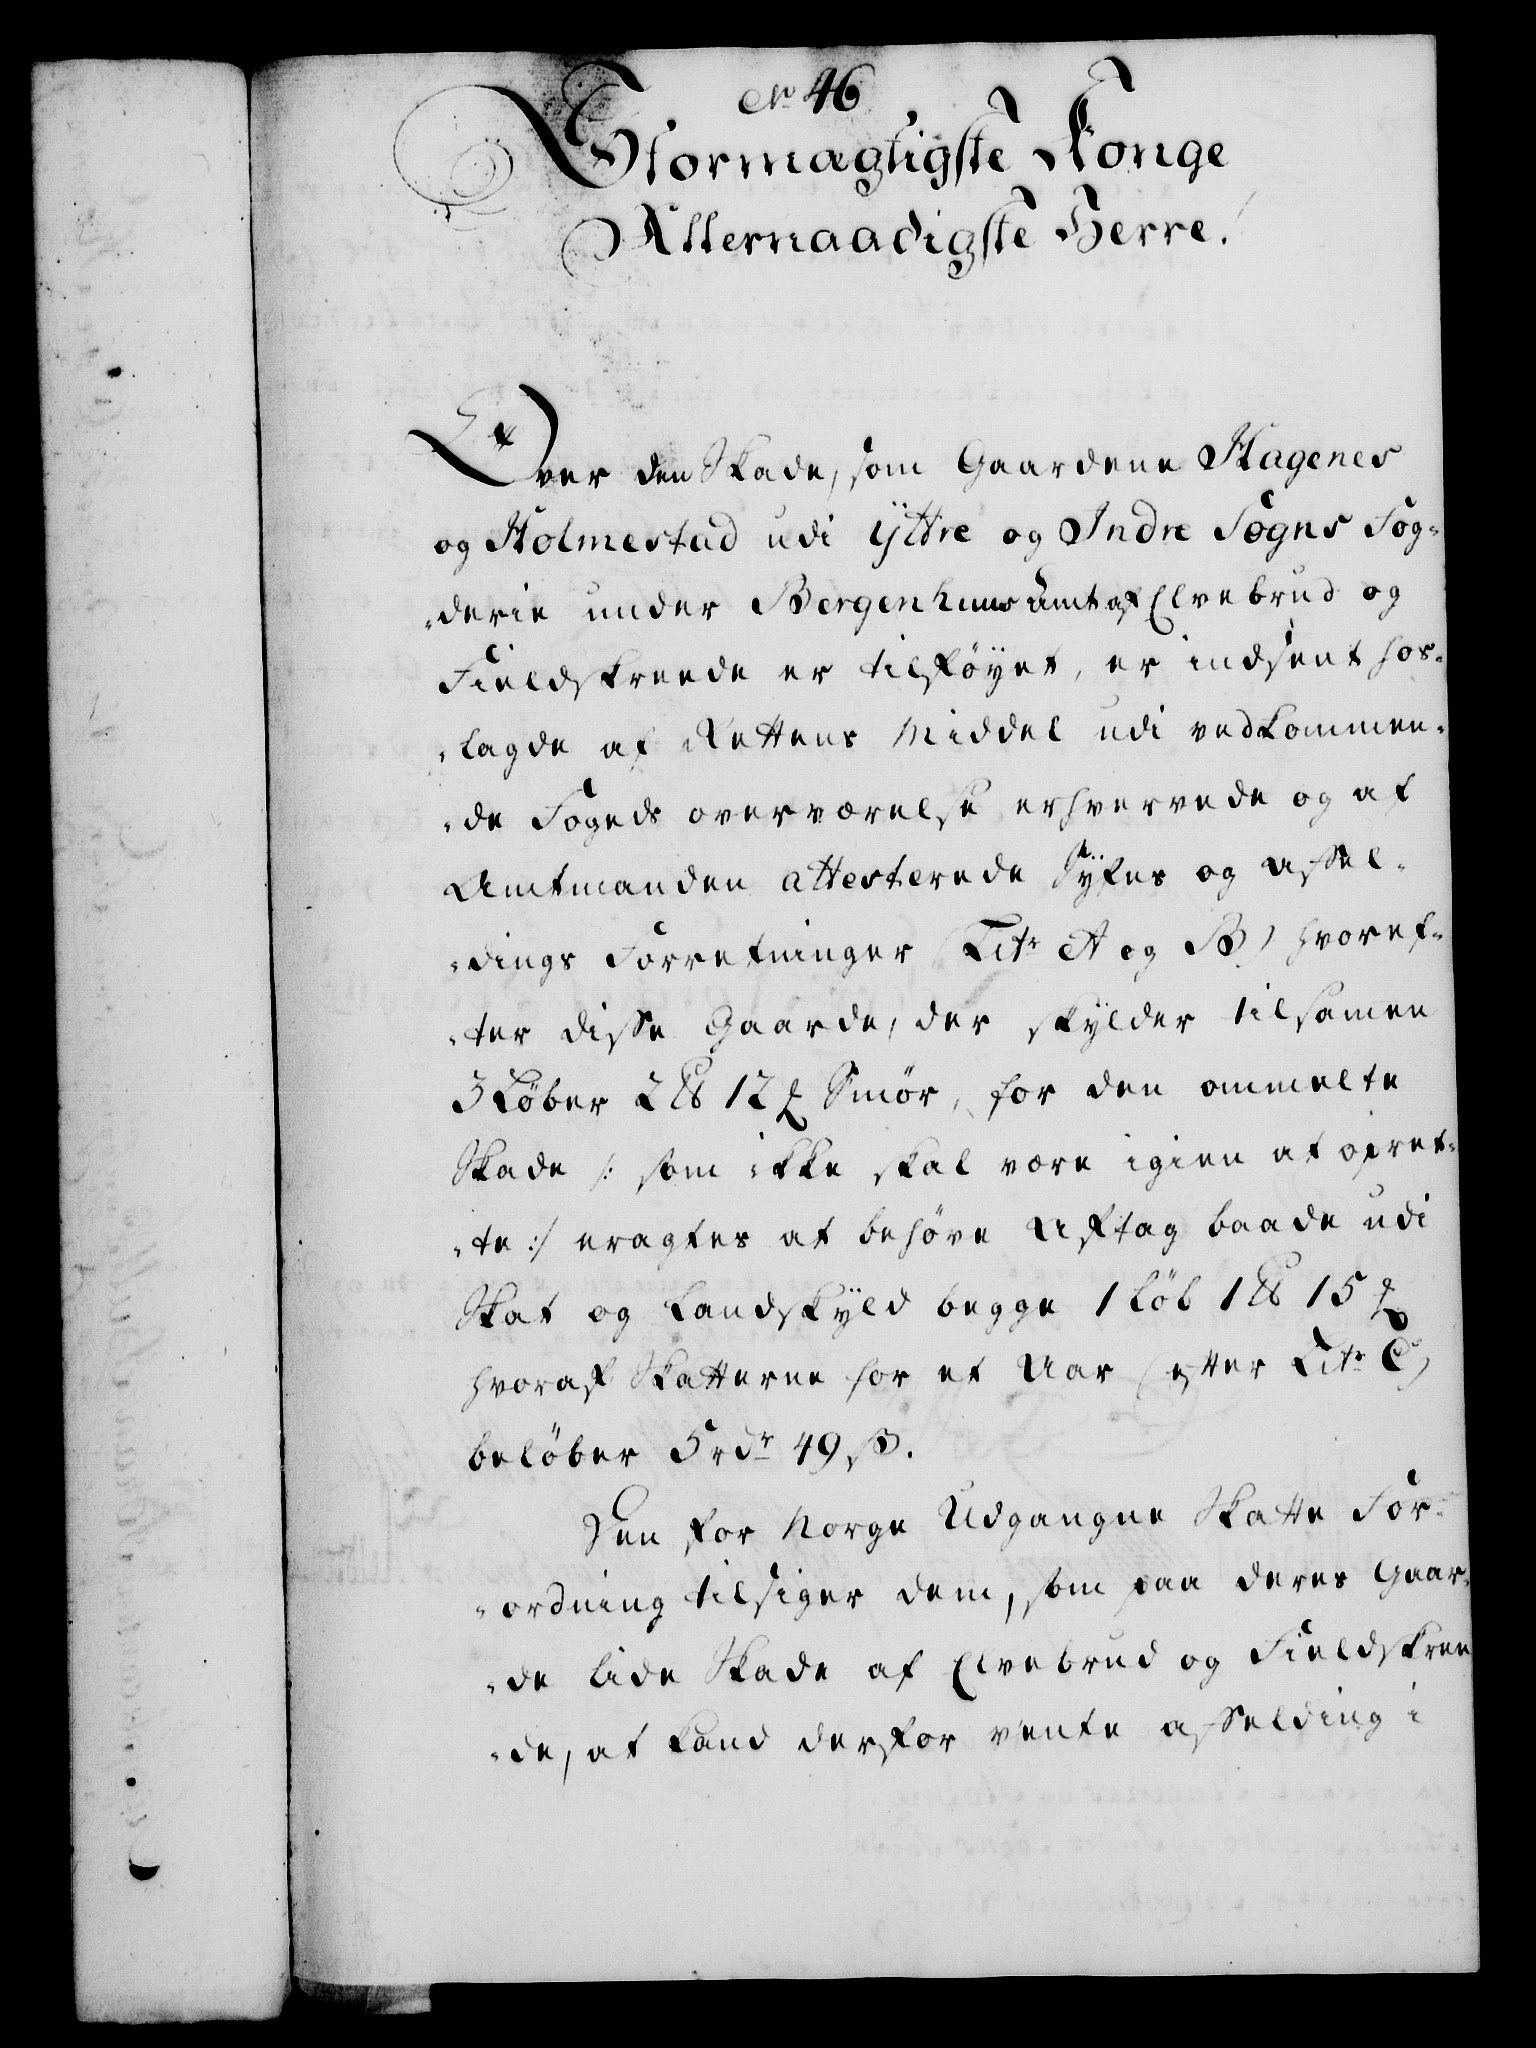 No 46
Stormægtigste Konge
Allernaadigste Herre!
Over den Skade, som Gaardene Hagenes
og Holmestad udi Ÿttre og Indre Sogns Fog-
-derie under Bergenhuus Amt af Elvebrud og
Fieldskreede er tilføÿet, er indsent hos-
-lagde af Rettens Middel udi vedkommen-
-de Fogeds overværelse erhvervede og af
Amtmanden attesterede Sÿnes og affel-
-dings Forretninger (Litr A og B) hvoref-
-ter disse Gaarde, der skÿlder tilsamen
3 Løber 2 ℔ 12 ₰ Smør, for den ommelte
Skade /: som ikke skal være igien at opret-
-te :/ eragtes at behøve Aftag baade udi
Skat og Landskÿld begge 1 Løb 1 ℔ 15 ₰
hvoraf Skatterne for et Aar (efter Litr C)
beløber 5 rdr 49 ß.
Den for Norge Udgangne Skatte For-
-ordning tilsiger dem, som paa deres Gaar-
-de lide Skade af Elvebrud og Fieldskree
-de, at kand derfor vente affelding i